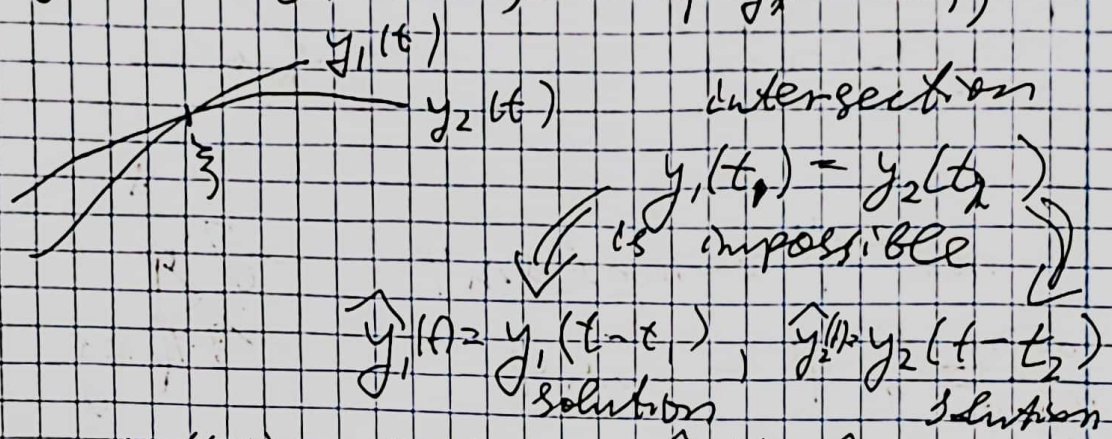 y₁(t)
y₂(t)
intersection
ξ
y₁(t₁) = y₂(t₂)
is impossible
ŷ₁(t) = y₁(t-t₁), ŷ₂(t) = y₂(t-t₂)
solution solution